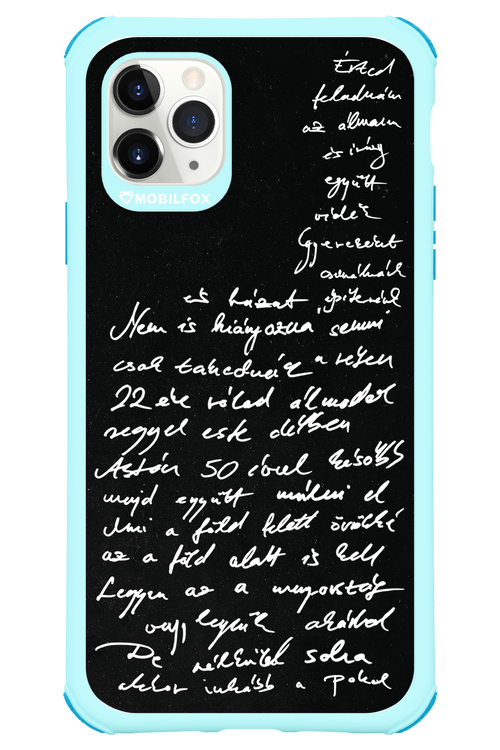 MOBILFOX
Érted
feladnám
az álmam
és így
együtt
Gyerekeket
csinálnánk
és házat építenénk
Nem is hiányozna semmi
csak takarodnánk a
22 éve rólad álmodok
reggel este délben
Aztán 50 évvel később
majd együtt múlni el
Ami a föld felett örökké
az a föld alatt is kell
Legyen az a mennyország
vagy legyünk akárhol
De nélküled soha
akkor inkább a Pokol